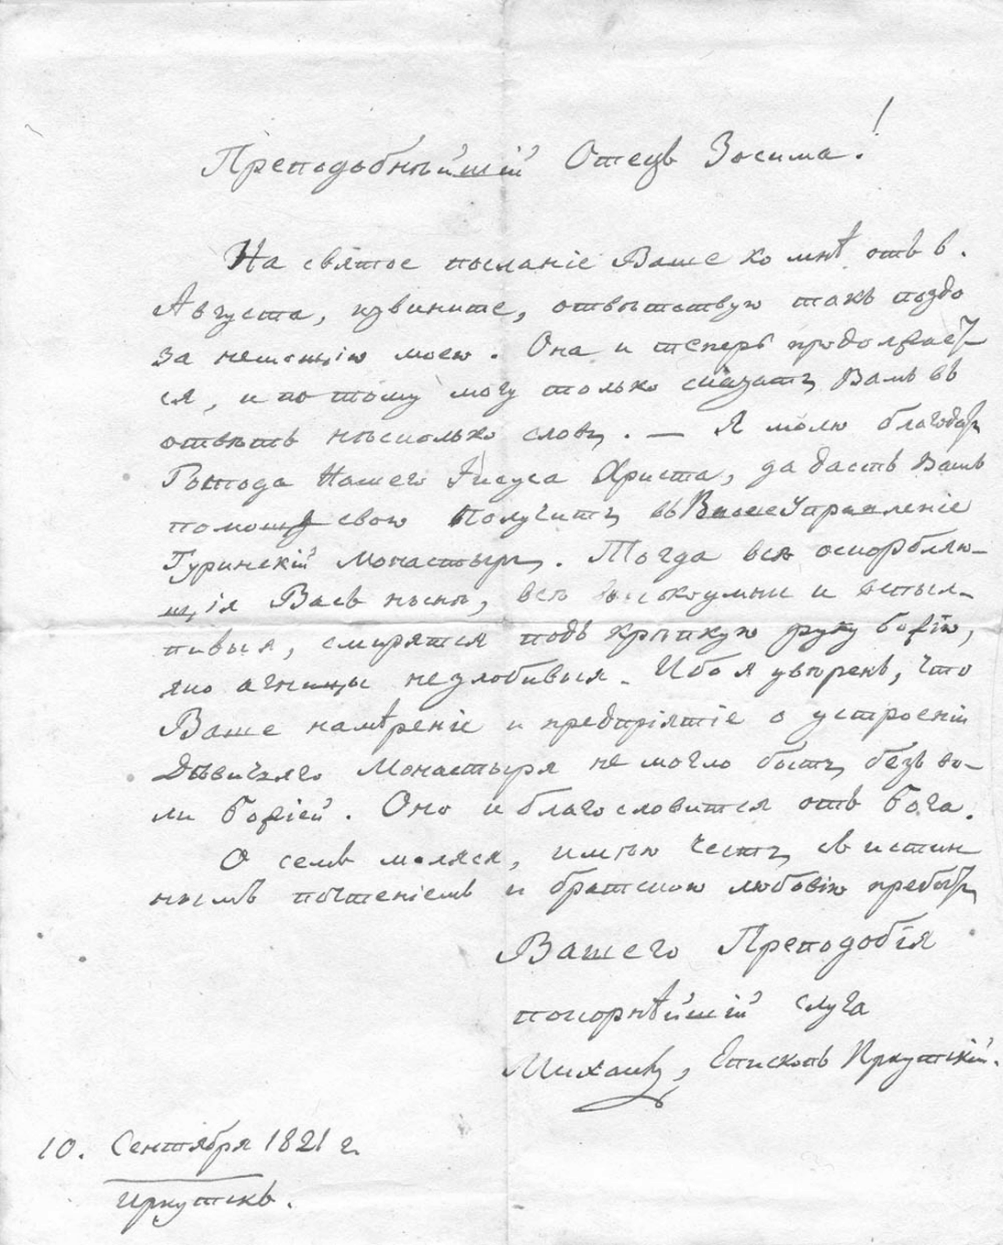 Преподобнѣйшій Отецъ Зосима!
На святое посланіе Ваше ко мнѣ отъ 6.
Августа, извините, отвѣтствую такъ поздо
за немощію моею. Она и теперь продолжает-
ся, и по тому могу только сказать Вамъ въ
отвѣтъ нѣсколько словъ. — Я молю благодать
Господа Нашего Іисуса Христа, да дастъ Вамъ
помощь свою получить въ Ваше Управленіе
Туринскій Монастырь. Тогда всѣ оскорбляю-
щія Васъ нынѣ, всѣ высокоумныя и
смирятся подъ крѣпкую руку Божію,
яко агницы незлобивыя. Ибо я увѣренъ, что
Ваше намѣреніе и предпріятіе о устроеніи
Дѣвичяго Монастыря не могло быть безъ во-
ли Божіей. Оно и благословится отъ Бога.
О семъ моляся, имѣю честь съ истин-
нымъ почтеніемъ и братскою любовію пребыть
Вашего Преподобія
покорнѣйшій слуга
Михаилъ, Епископъ Иркутскій.
10. Сентября 1821 г.
Иркутскъ.